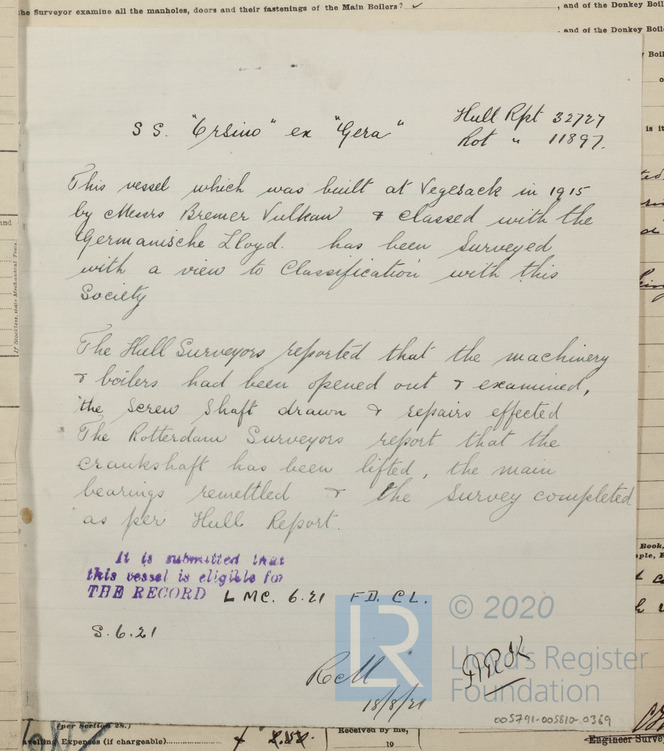 the Surveyor examine all the manholes, doors and their fastenings of the Main Boilers? ✓ , and of the Donkey Boil
and of the Donkey Boil
S S. "Orsino" ex "Gera"
Hull Rpt 32727
Rot " 11897.
This vessel which was built at Vegesack in 1915
by Messrs Bremer Vulkan & classed with the
Germanische Lloyd. has been Surveyed
with a view to Classification with this
Society
The Hull Surveyors reported that the machinery
& boilers had been opened out & examined,
the Screw Shaft drawn & repairs effected
The Rotterdam Surveyors report that the
crankshaft has been lifted, the main
bearings remettled & the Survey completed
as per Hull Report.
It is submitted that
this vessel is eligible for
THE RECORD L MC. 6.21 F.D. C.L.
S. 6.21
18/8/21
LR
© 2020
Lloyd's Register
Foundation
005791-005810-0369
(per Section 28.)
avelling Expenses (if chargeable)
Received by me,
19
Engineer Surve